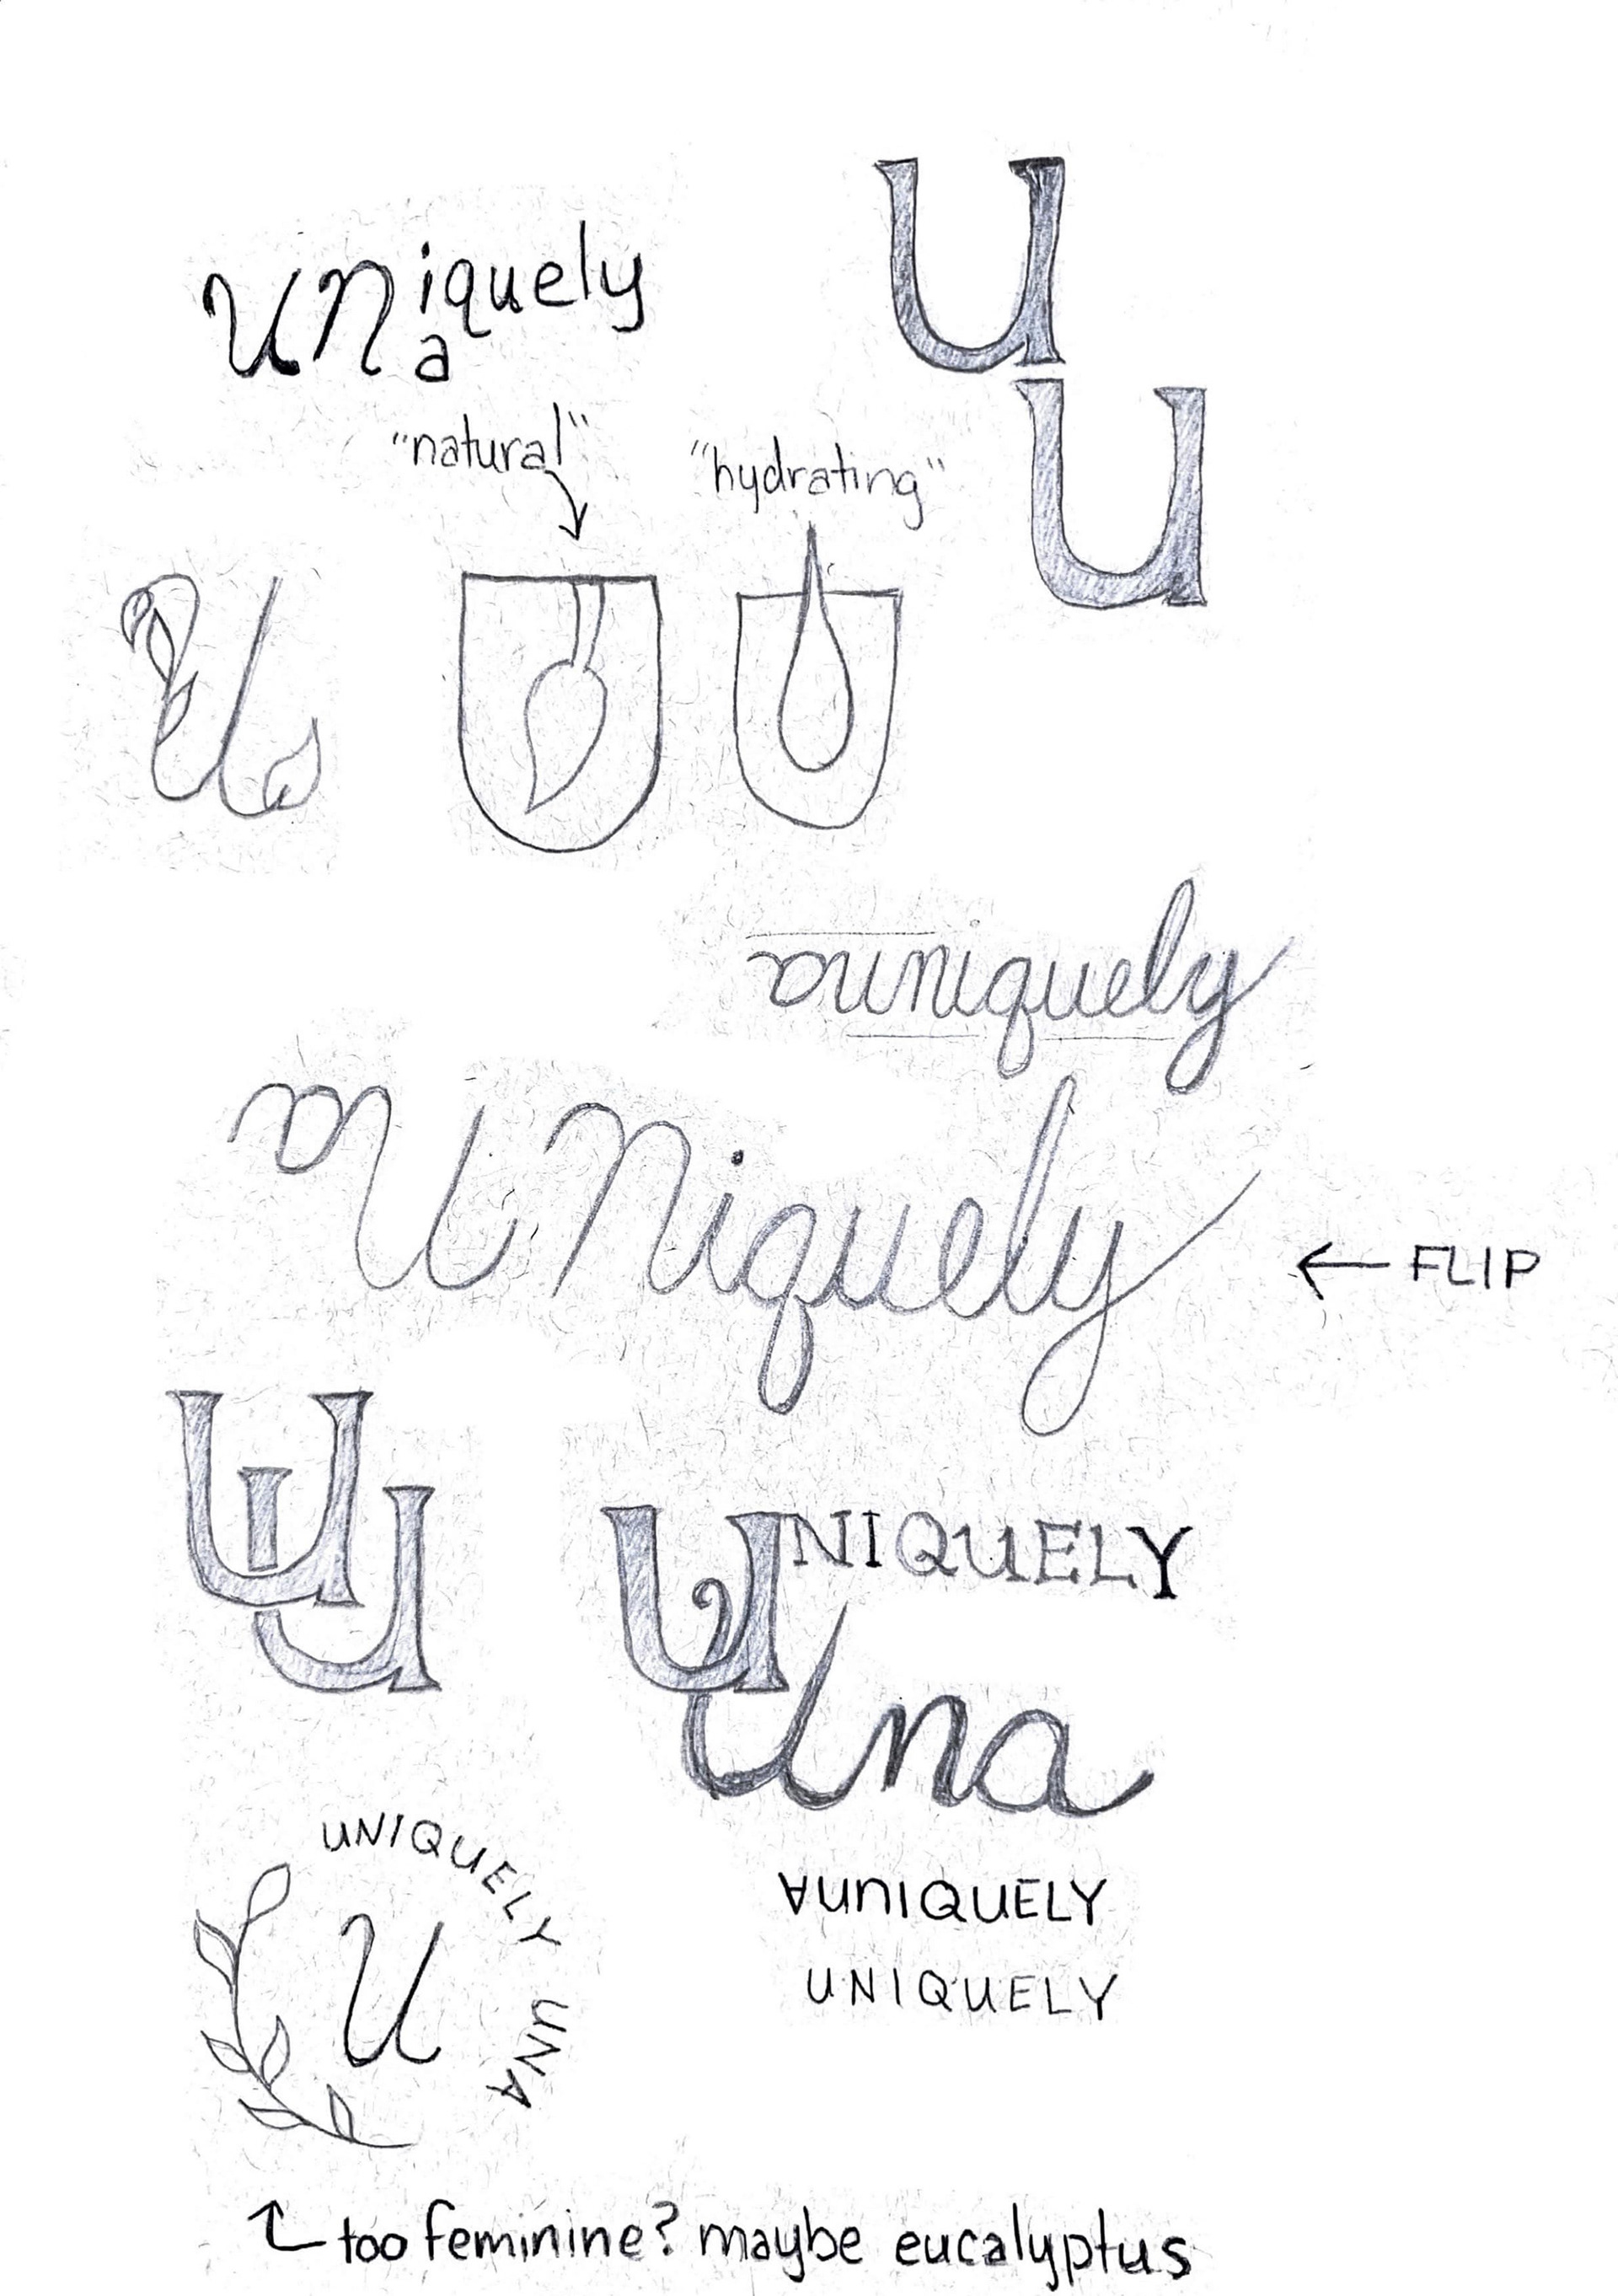 U
UNiquely
a
U
"natural"
"hydrating"
U
auniquely
aUNiquely
← FLIP
U
U
UNIQUELY
Una
UNIQUELY UNA
U
∀UNIQUELY
UNIQUELY
too feminine? maybe eucalyptus